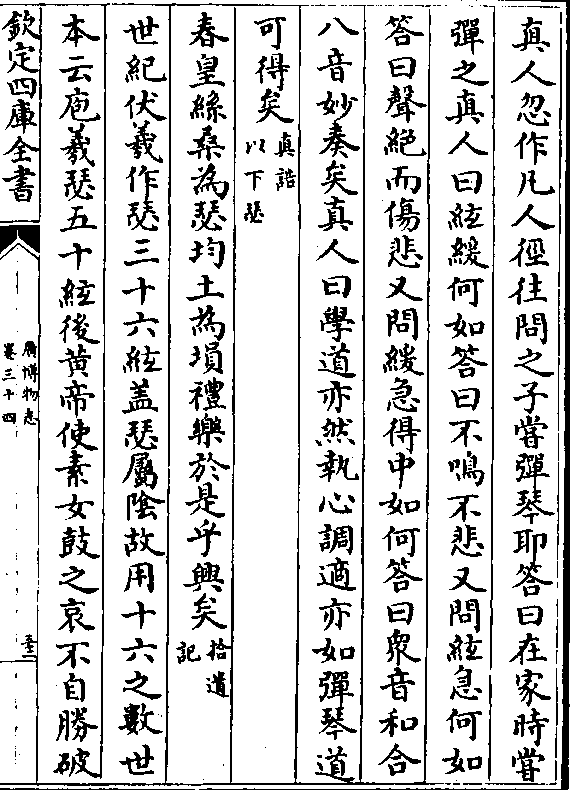 真人忽作凡人徑徃問之子嘗彈琴耶答曰在家時嘗
彈之真人曰絃緩何如答曰不鳴不悲又問絃急何如
答曰聲絕而傷悲又問緩急得中如何答曰衆音和合
八音妙奏矣真人曰學道亦然執心調適亦如彈琴道
可得矣真誥以下瑟
春皇絲桑為瑟均土為塤禮樂於是乎興矣拾遺記
世紀伏羲作瑟三十六絃盖瑟屬陰故用十六之數世
本云庖羲瑟五十絃後黄帝使素女鼓之哀不自勝破
欽定四庫全書
廣博物志
卷三十四